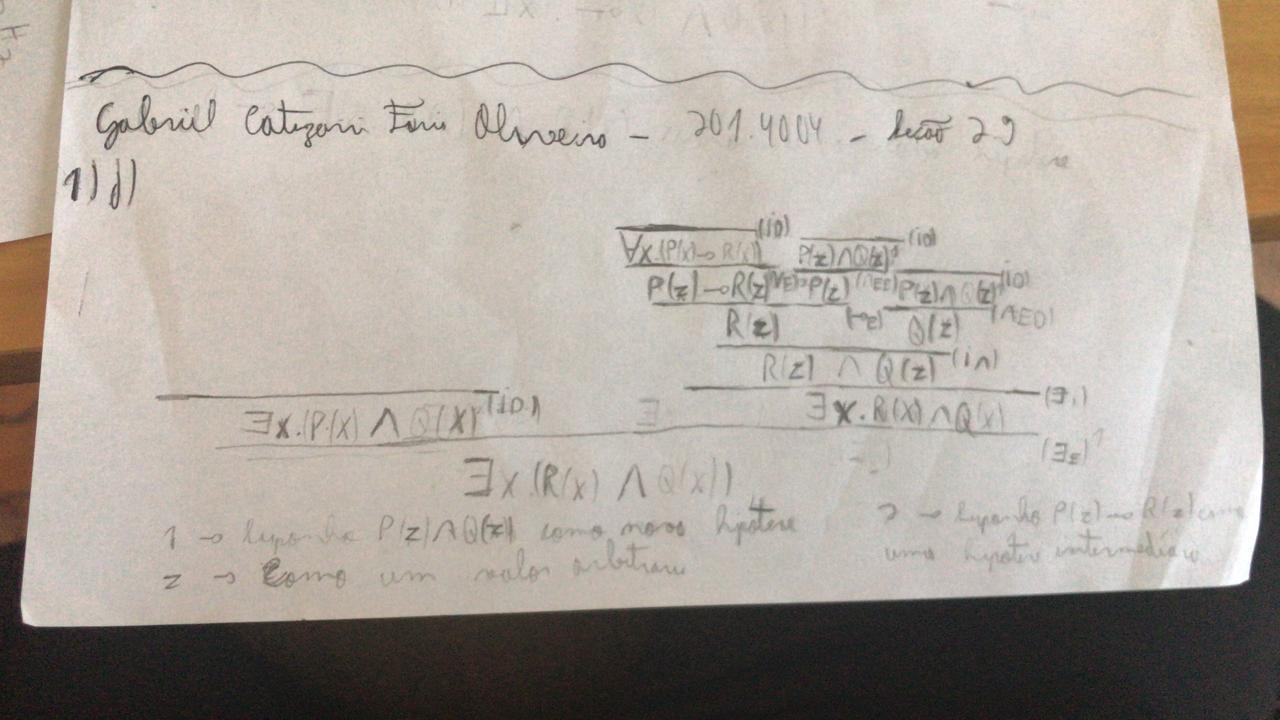 Gabriel Oliveira - 201.4004 - Lição 29
1) d)
(iD)
∀x.(P(x)→R(x)) P(z)∧Q(z)¹ (iD)
P(z)→R(z) P(z) (∧EE) P(z)∧Q(z) (iD)
R(z) Q(z) (∧ED)
R(z) ∧ Q(z) (i∧)
∃x.(P(x) ∧ Q(x) (iD) ∃ ∃x.R(x)∧Q(x) (∃i)
∃x (R(x) ∧ Q(x)) (∃E)¹
1 → suponha P(z)∧Q(z) como nova hipótese
z → Como um valor arbitrario
2 → suponho P(z)→R(z) como
uma hipotese intermediária